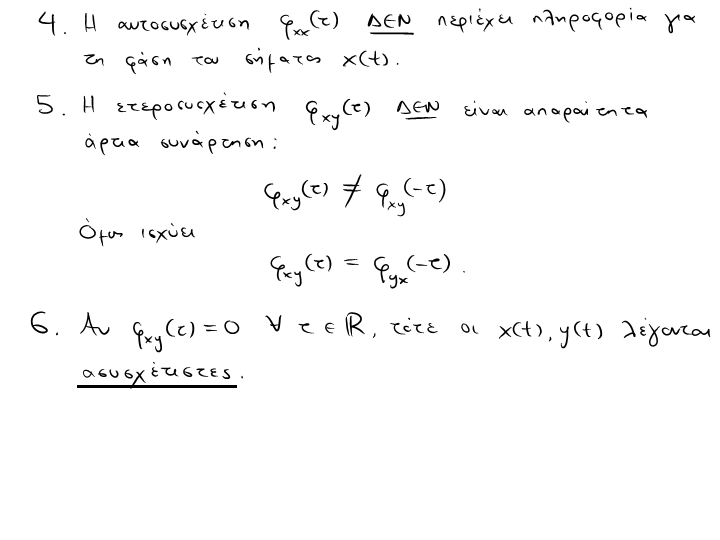 4. Η αυτοσυσχέτιση φxx(τ) ΔΕΝ περιέχει πληροφορία για
τη φάση του σήματος x(t).
5. Η ετεροσυσχέτιση φxy(τ) ΔΕΝ είναι απαραίτητα
άρτια συνάρτηση:
φxy(τ) ≠ φxy(-τ)
Όμως ισχύει
φxy(τ) = φyx(-τ).
6. Αν φxy(τ) = 0 ∀ τ ∈ ℝ, τότε οι x(t), y(t) λέγονται
ασυσχέτιστες.